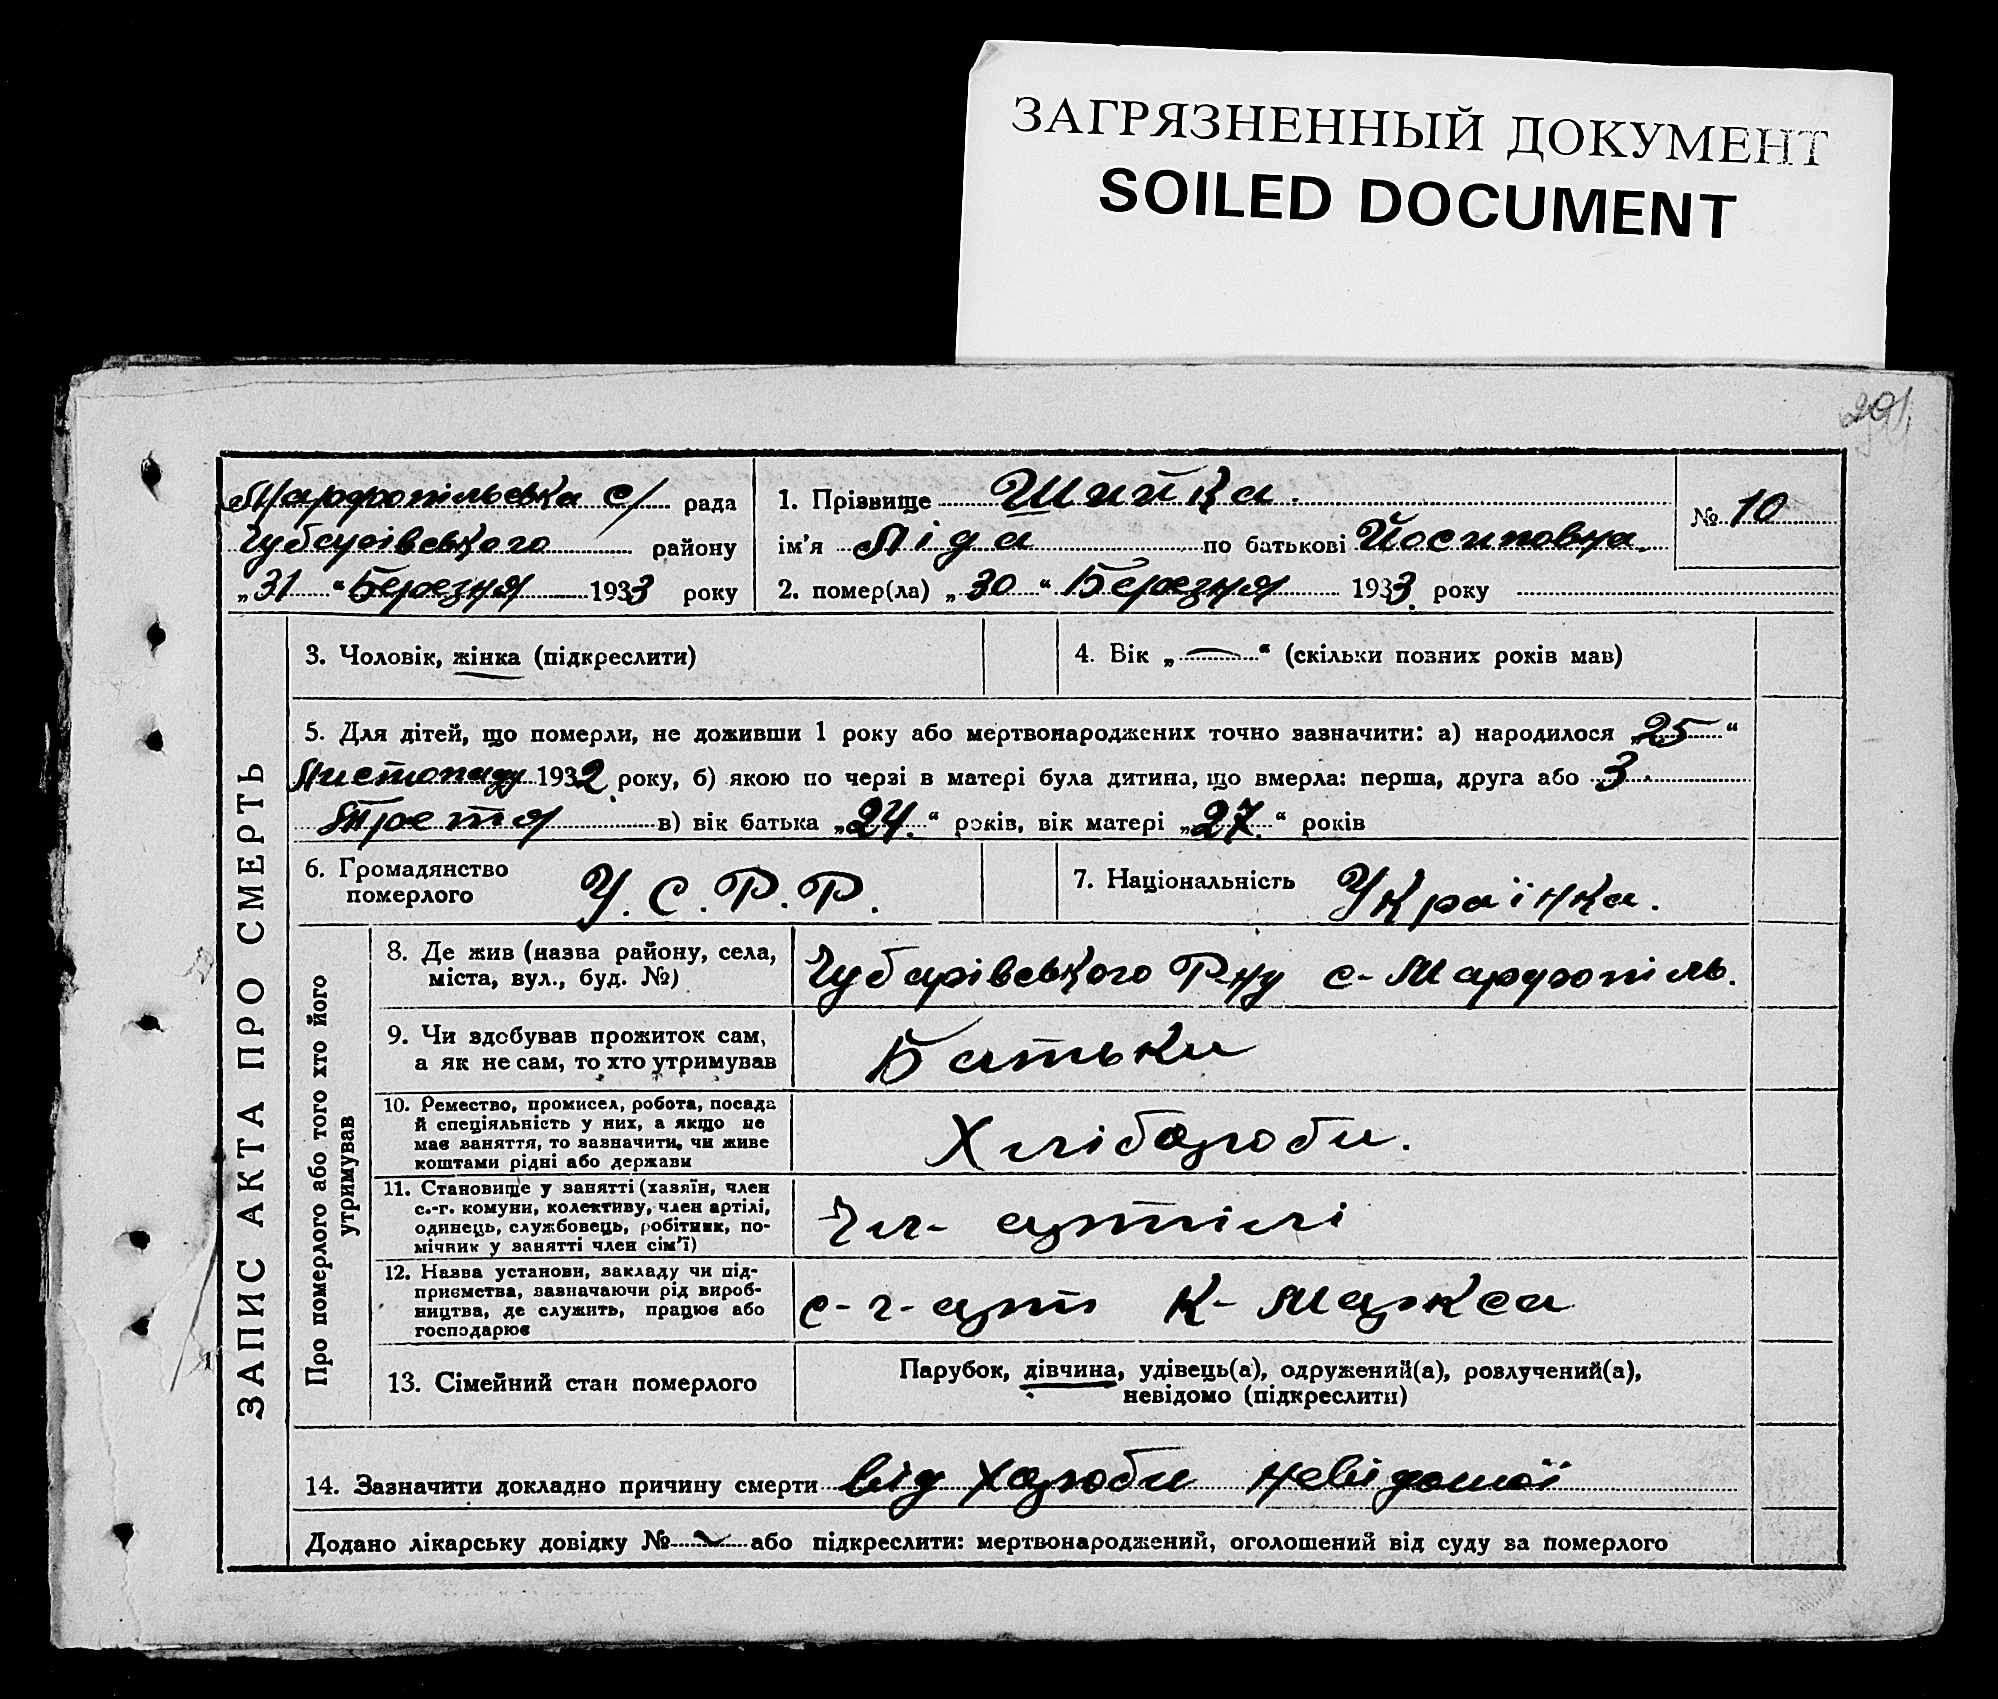 ЗАГРЯЗНЕННЫЙ ДОКУМЕНТ
SOILED DOCUMENT
291
Марфопільська с/ рада
Чубарівського району
„31“ Березня 1933 року
1. Прізвище Шийка.
ім'я Ліда по батькові Йосиповна.
2. помер(ла) „30“ Березня 1933 року
№ 10
ЗАПИС АКТА ПРО СМЕРТЬ
3. Чоловік, жінка (підкреслити)
4. Вік „—“ (скільки позних років мав)
5. Для дітей, що померли, не доживши 1 року або мертвонароджених точно зазначити: а) народилося „25“
Листопаду 1932 року, б) якою по черзі в матері була дитина, що вмерла: перша, друга або 3
Третя в) вік батька „24.“ років, вік матері „27.“ років
6. Громадянство
померлого
У.С.Р.Р.
7. Національність Українка.
Про померлого або того хто його
утримував
8. Де жив (назва району, села,
міста, вул., буд. №)
Чубарівського Р-ну с- Марфопіль.
9. Чи здобував прожиток сам,
а як не сам, то хто утримував
Батьки
10. Ремество, промисел, робота, посада
й спеціяльність у них, а якщо не
має заняття, то зазначити, чи живе
коштами рідні або держави
Хлібороби.
11. Становище у занятті (хазяїн, член
с.-г. комуни, колективу, член артілі,
одинець, службовець, робітник, по-
мічник у занятті член сім'ї)
Чл- артілі
12. Назва установи, закладу чи під-
приємства, зазначаючи рід вироб-
ництва, де служить, працює або
господарює
с-г-арт К- Маркса
13. Сімейний стан померлого
Парубок, дівчина, удівець(а), одружений(а), розлучений(а),
невідомо (підкреслити)
14. Зазначити докладно причину смерти від хороби невідомої
Додано лікарську довідку № або підкреслити: мертвонароджений, оголошений від суду за померлого